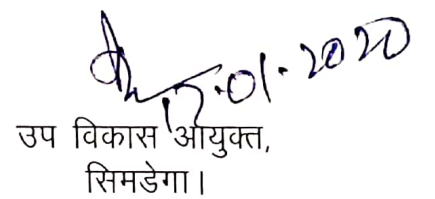 17.01.2020
उप विकास आयुक्त,
सिमडेगा।